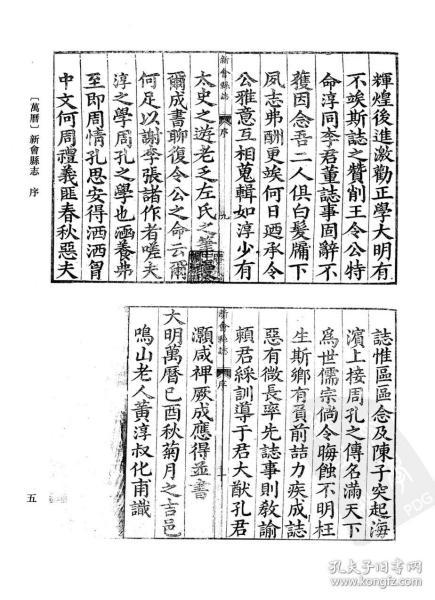 輝煌後進激勸正學大明有
不竢斯誌之贊削王令公特
命淳同李君董誌事固辭不
獲因念吾二人俱白髮牖下
夙志弗酬更竢何日迺承令
公雅意互相蒐輯如淳少有
太史之遊老乏左氏之筆
爾成書聊復令公之命云爾
何足以謝李張諸作者嗟夫
淳之學周孔之學也涵養弗
至即周情孔思安得洒洒胷
中文何周禮義匪春秋惡夫
新會縣志 序 九
誌惟區區念及陳子突起海
濱上接周孔之傳名滿天下
爲世儒宗倘令晦蝕不明枉
生斯鄉有負前喆力疾成誌
惡有微長率先誌事則教諭
賴君綵訓導于君大猷孔君
灝咸裨厥成應得並書
大明萬曆己酉秋菊月之吉邑
鳴山老人黃淳叔化甫識
新會縣志 序 十
〔萬曆〕新會縣志 序
五
孔夫子旧书网
PDG